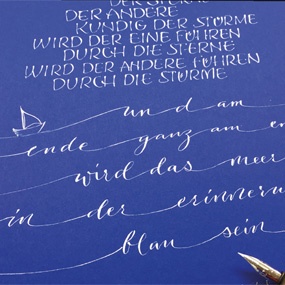 DER STERNE
DER ANDERE
KUNDIG DER STÜRME
WIRD DER EINE FÜHREN
DURCH DIE STERNE
WIRD DER ANDERE FÜHREN
DURCH DIE STÜRME
und am
ende ganz am en
wird das meer
in der erinneru
blau sein